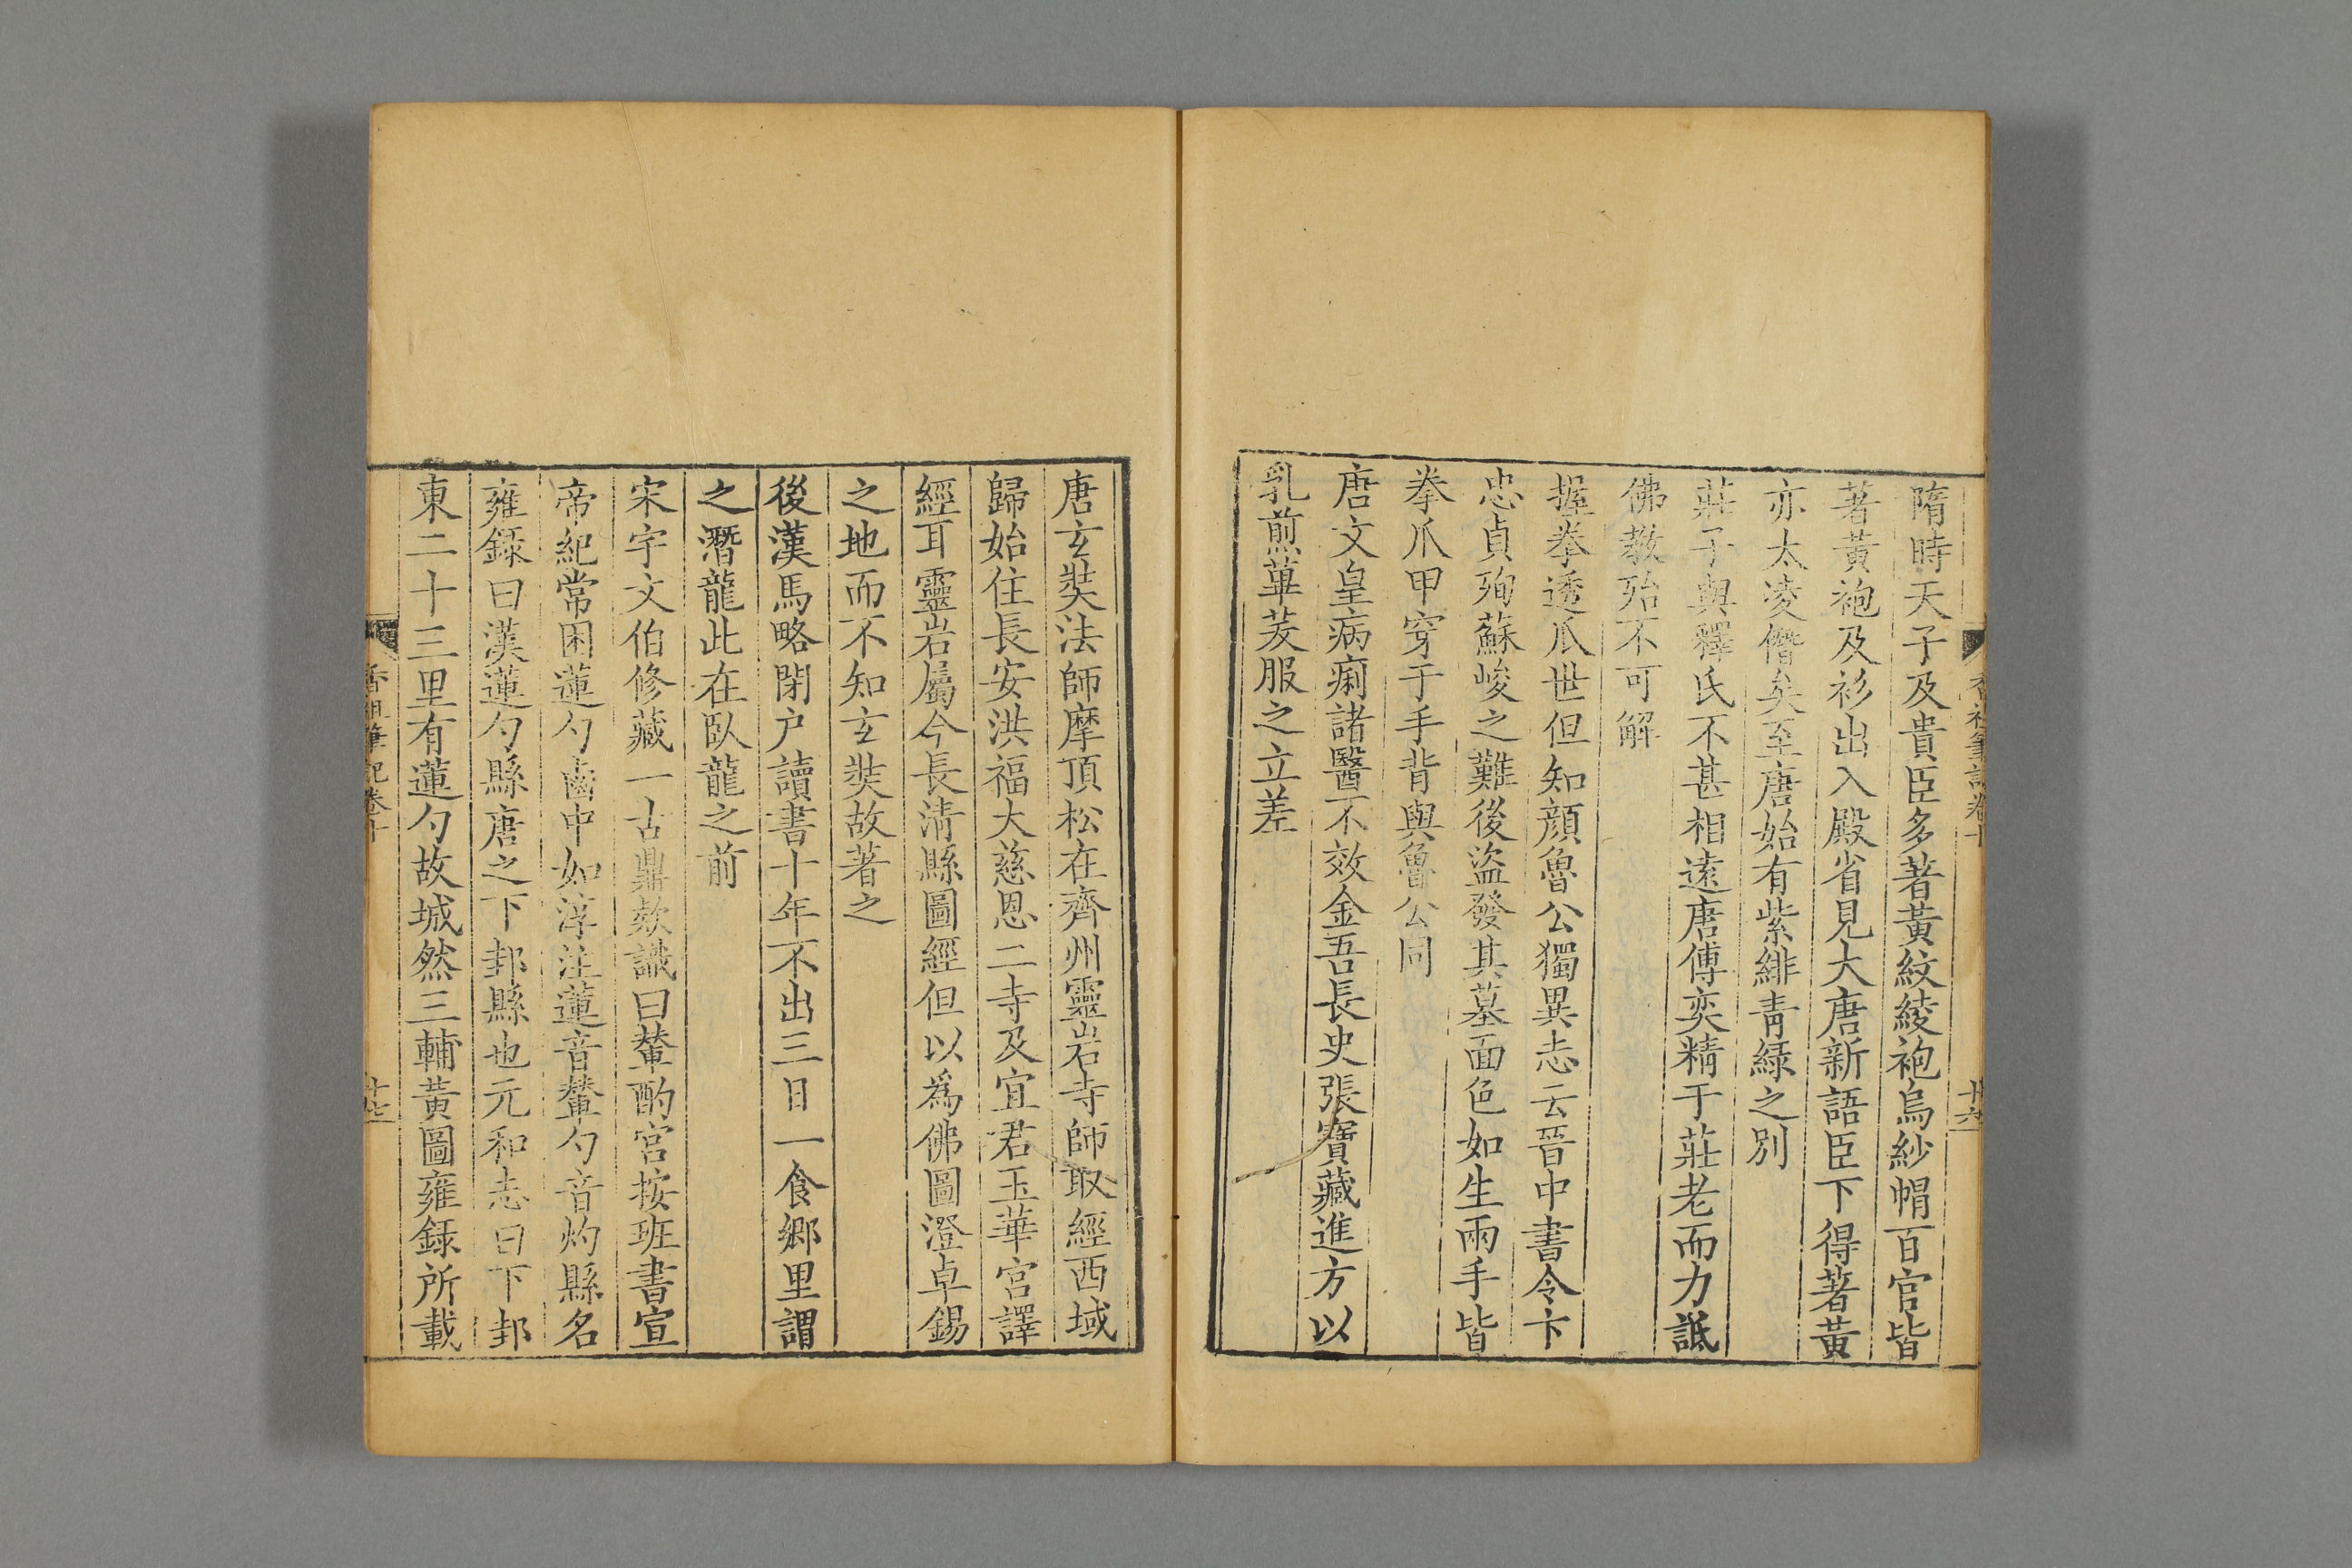 香祖筆記卷十
十六
隋時天子及貴臣多著黃紋綾袍烏紗帽百官皆
著黃袍及衫出入殿省見大唐新語臣下得著黃
亦太凌僭矣至唐始有紫緋青綠之別
莊子與釋氏不甚相遠唐傅奕精于莊老而力詆
佛教殆不可解
握拳透爪世但知顏魯公獨異志云晉中書令卞
忠貞殉蘇峻之難後盜發其墓面色如生兩手皆
拳爪甲穿于手背與魯公同
唐文皇病痢諸醫不效金吾長史張寶藏進方以
乳煎蓽茇服之立差
唐玄奘法師摩頂松在齊州靈岩寺師取經西域
歸始住長安洪福大慈恩二寺及宜君玉華宮譯
經耳靈岩屬今長淸縣圖經但以爲佛圖澄卓錫
之地而不知玄奘故著之
後漢馬略閉户讀書十年不出三日一食鄉里謂
之潛龍此在臥龍之前
宋宇文伯修藏一古鼎欵識曰輦酌宮按班書宣
帝紀常困蓮勺鹵中如淳注蓮音輦勺音灼縣名
雍錄曰漢蓮勺縣唐之下邽縣也元和志曰下邽
東二十三里有蓮勺故城然三輔黃圖雍錄所載
香祖筆記卷十
十七